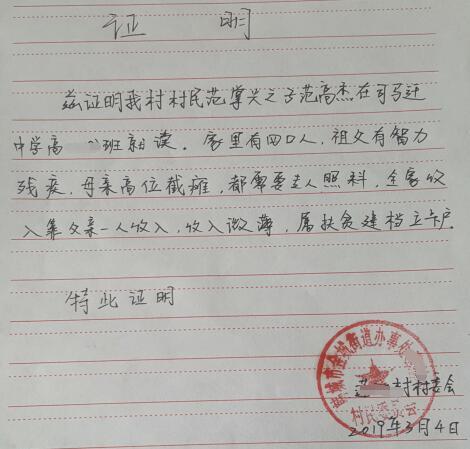 证 明
兹证明我村村民范掌兴之子范高杰在司马迁
中学高 班就读。家里有四口人，祖父有智力
残疾，母亲高位截瘫，都需要专人照料，全家收
入靠父亲一人收入，收入微薄，属扶贫建档立卡户。
特此证明
韩城市金城街道办事处
村村委会
村民委员会
2019年3月4日